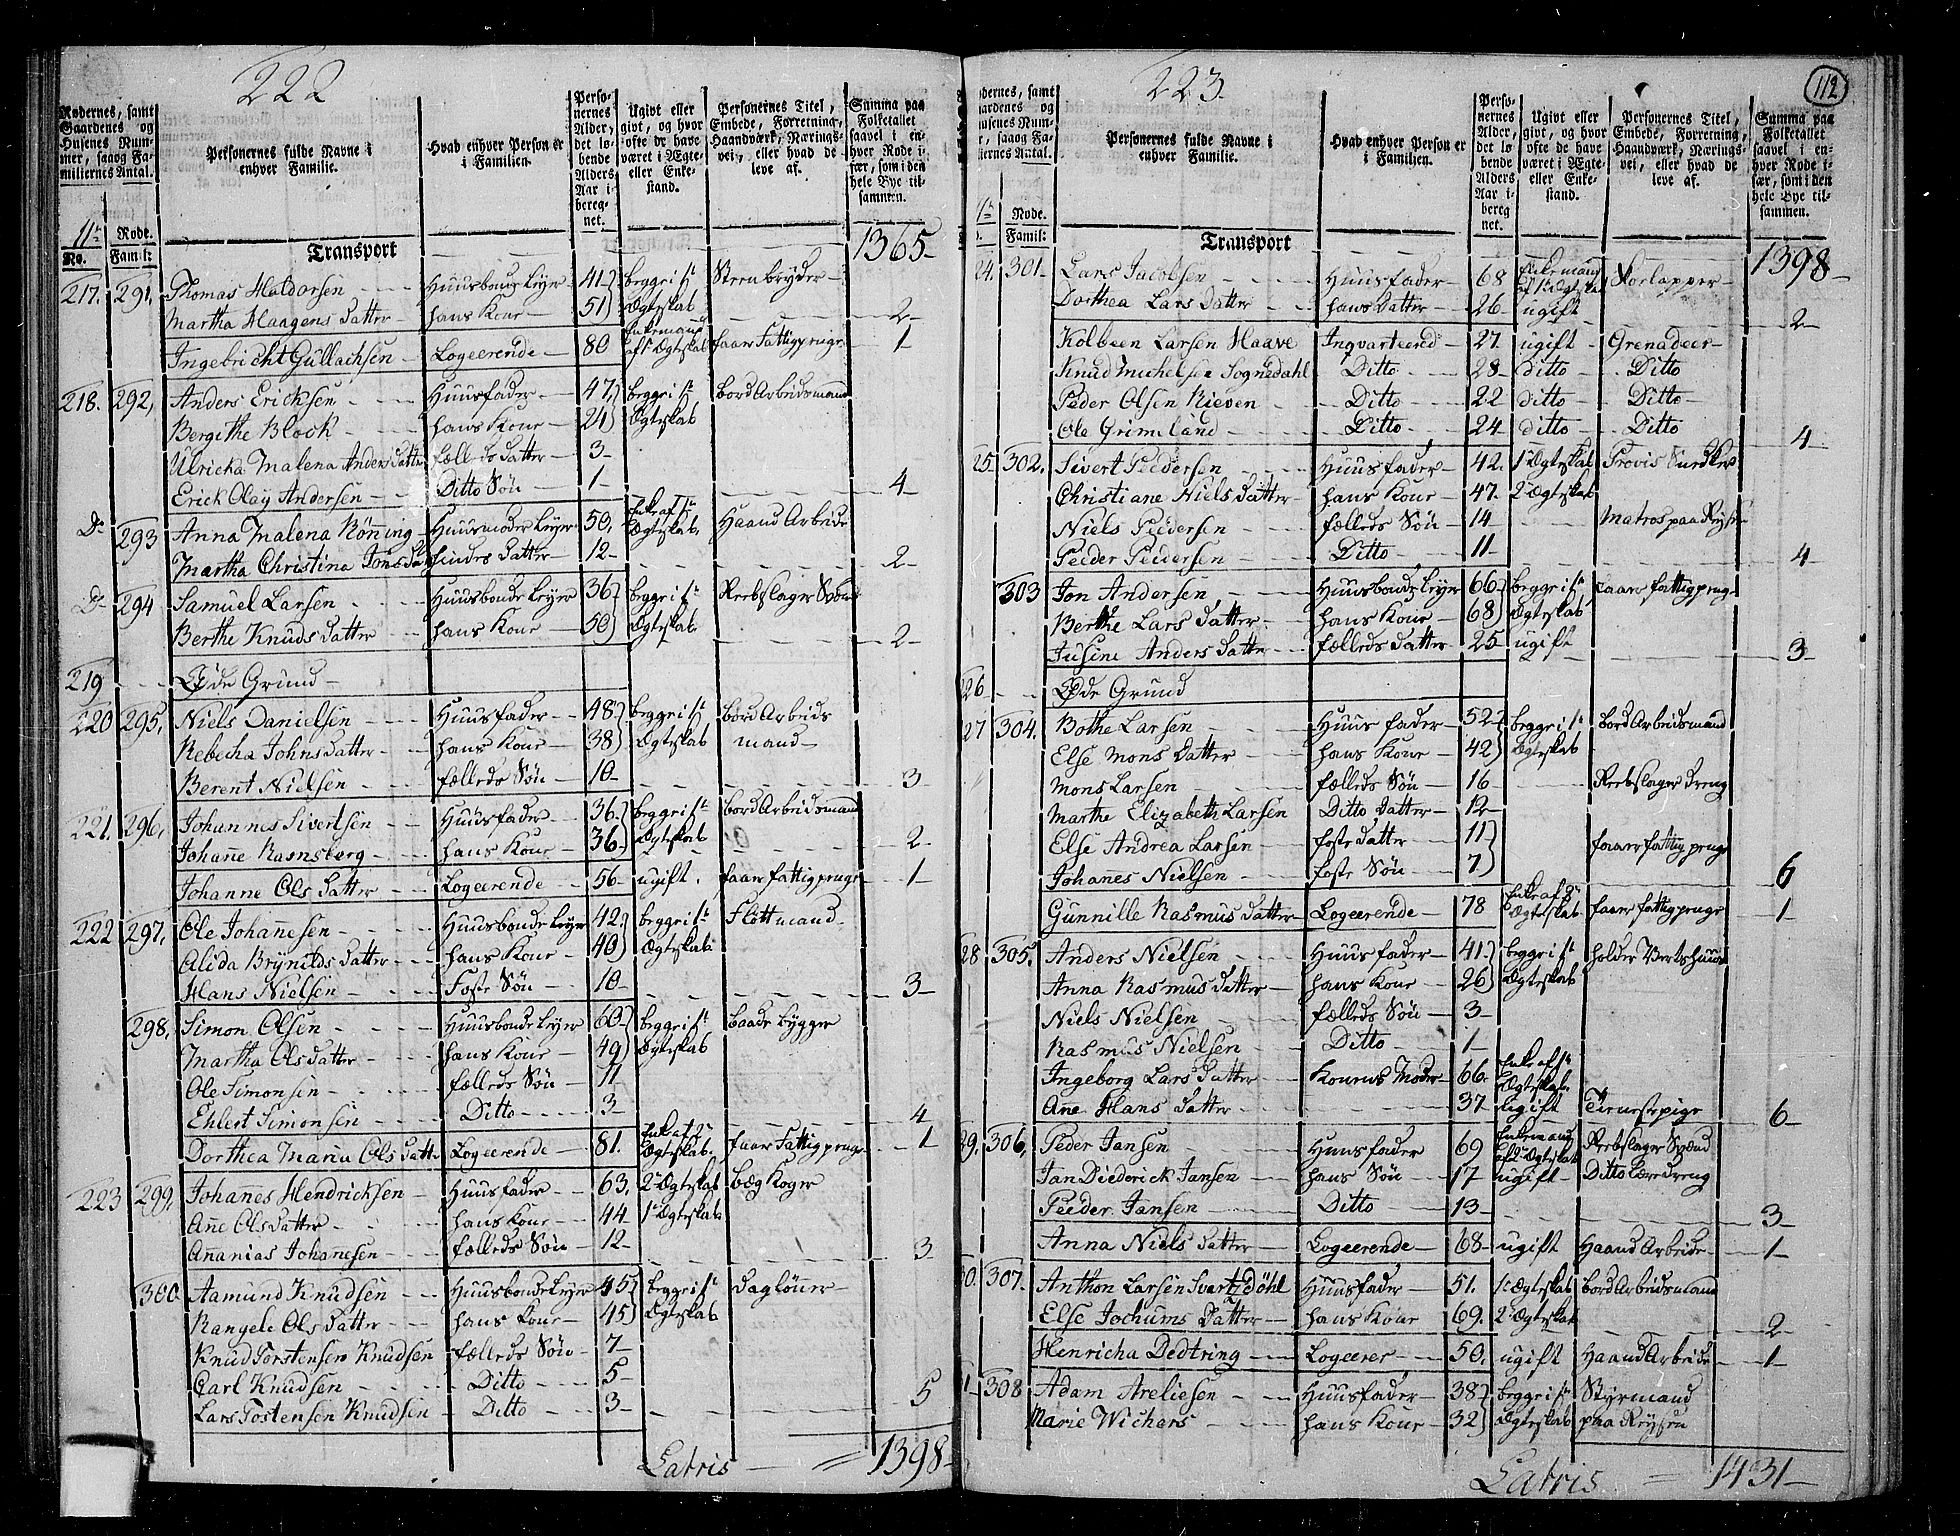 222
Rodernes, samt Gaardenes og Husenes Nummer, saaog Familiernes Antal.
Personernes fulde Navne i enhver Familie.
Hvad enhver Person er i Familien.
Personernes Alder, det løbende Alders Aar iberegnet.
Ugivt eller givt, og hvor ofte de have været i Ægte- eller Enkestand.
Personernes Titel, Embede, Forretning, Haandværk, Næringsvei, eller hvad de leve af.
Summa paa Folketallet saavel i enhver Rode især, som i den hele Bye tilsammen.
11te Rode.
No. Famil:
Transport 1365
217. 291. Thomas Haldorsen Huusbonde Leyer 41 begge i 1te Steenbryder
Martha Haagens Datter hans Kone 51 Ægteskab 2
Ingebricht Gullachsen Logeerende 80 Enkemand af 1te Ægteskab faar Fattigpenge 1
218. 292. Anders Ericksen Huusfader 47 begge i 1te bord Arbeidsmand
Bergithe Block hans Kone 24 Ægteskab
Ulricka Malena Anders Datter fælleds Datter 3
Erick Olay Andersen Ditto Søn 1 4
Do 293 Anna Malena Rønning Huusmoder Leyer 50. Enke af 1te Ægteskab Haand Arbeide
Martha Christina Jonsdatter hindes Datter 12 2
Do 294 Samuel Larsen Huusbonde Leyer 36 begge i 1te Reebslager Svend
Berthe Knuds Datter hans Kone 50 Ægteskab 2
219 Øde Grund
220 295. Niels Danielsen Huusfader 48 begge i 1te bord Arbeids
Rebecha Johns Datter hans Kone 38 Ægteskab mand
Berent Nielsen fælleds Søn 10 3
221. 296. Johannes Sivertsen Huusfader 36 begge i 1te bord Arbeidsmand
Johanne Ramsberg hans Kone 36 Ægteskab 2
Johanne Ols Datter Logeerende 56 ugift. faar fattigpenge 1
222 297. Ole Johannesen Huusbonde Leyer 42. begge i 1te Flottmand
Alida Brynilds Datter hans Kone 40 Ægteskab
Hans Nielsen Foste Søn 10 3
298. Simon Olsen Huusbonde Leyer 60 begge i 1te baade bygger
Martha Olsdatter hans Kone 49 Ægteskab
Ole Simonsen fælleds Søn 11
Ehlert Simonsen Ditto 3 4
Dorthea Maria Ols Datter Logeerende 81. Enke af 2de Ægteskab. faar Fattigpenge 1
223 299. Johannes Hendricksen Huusfader 63. 2de Ægteskab bæg Koger
Anne Olsdatter hans Kone 44 1te Ægteskab
Ananias Johanesen fælleds Søn 12 3
300 Aamund Knudsen Huusbonde Leyer 45 begge i 1te Dagløner
Rangele Ols Datter hans Kone 45 Ægteskab
Knud Torstensen Knudsen fælleds Søn 7
Carl Knudsen Ditto 5
Lars Tostensen Knudsen Ditto 3 5
Latris = 1398
223.
112
dernes, samt ardenes og usenes Num- r, saaog Fa- iliernes Antal.
Personernes fulde Navne i enhver Familie.
Hvad enhver Person er i Familien.
Personernes Alder, det løbende Alders Aar iberegnet.
Ugivt eller givt, og hvor ofte de have været i Ægte- eller Enkestand.
Personernes Titel, Embede, Forretning, Haandværk, Næringsvei, eller hvad de leve af.
Summa paa Folketallet saavel i enhver Rode især, som i den hele Bye tilsammen.
Rode.
Famil:
Transport 1398
24. 301 Lars Jacobsen Huusfader 68 Enkemand af 1te Ægteskab Skoelapper
Dorthea Lars Datter hans Datter 26 ugift 2
Kolbeen Larsen Haave Inqvarteered 27 ugift Grenadeer
Knud Michelsen Sognedahl Ditto 28 ditto Ditto
Peder Olsen Rieven Ditto 22 ditto Ditto
Ole Grimeland Ditto 24 ditto Ditto 4
25. 302. Sivert Peedersen Huusfader 42. 1te Ægteskab
Christiane Niels Datter hans Kone 47. 2de Ægteskab
Niels Peedersen fælleds Søn 14 Matros paa Reysen
Peeder Peedersen Ditto 11 4
303 Jon Andersen Huusbonde Leyer 66 begge i 1te faaer fattigpenge
Berthe Lars Datter hans Kone 68 Ægteskab
Jusine Anders Datter fælleds Datter 25 ugift 3
26 Øde Grund
27 304. Bothe Larsen Huusfader 52 begge i 1te bord Arbeidsmand
Else Mons Datter hans Kone 42 Ægteskab
Mons Larsen fælleds Søn 16 Reebslager Dreng
Marthe Elizabeth Larsen Ditto Datter 12
Else Andrea Larsen foste Datter 11 faaer fattig penge
Johanes Nielsen foste Søn 7 6
Gunnille Rasmus Datter Logeerende 78 Enke af 2de Ægteskab faar fattigpenge 1
28 305. Anders Nielsen Huusfader 41 begge i 1te holder Vertshuus
Anna Rasmus Datter hans Kone 26 Ægteskab
Niels Nielsen fælleds Søn 3
Rasmus Nielsen Ditto 1
Ingeborg Lars Datter Konens Moder 66 Enke af 1te Ægteskab
Ane Hans Datter 37 Ugift Tienestepige 6
29. 306. Peder Jansen Huusfader 69 Enkemand af 2de Ægteskab Reebslager Svend
Jan Diederick Jansen hans Søn 17 ugift Ditto Læredreng
Peeder Jansen Ditto 13 3
Anna Niels Datter Logeerende 68 ugift Haand Arbeide 1
30. 307. Anthon Larsen Svartzdøhl Huusfader 51. 1te Ægteskab bord Arbeidsmand
Else Jochums Datter hans Kone 69. 2de Ægteskab 2
Henricha Dedtring Logeerer 50. ugift Haand Arbeide 1
1 308 Adam Areliesen Huusfader 38 begge i 1te Styrmand
Marie Wichers hans Kone 32 Ægteskab paa Reysen
Latris = 1431